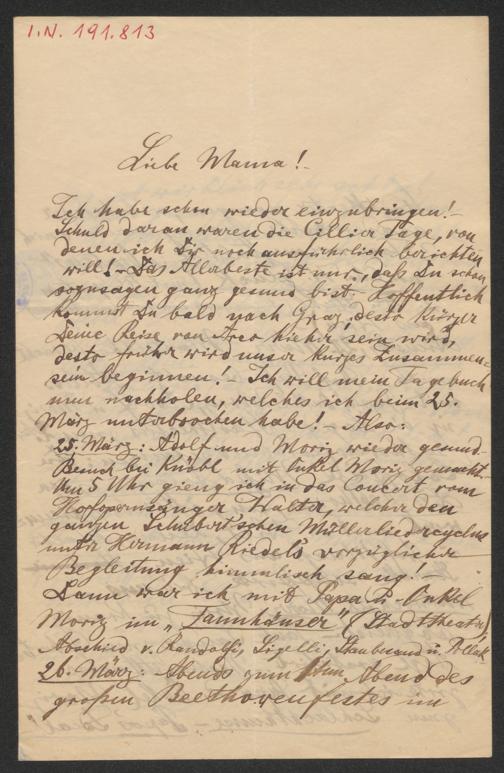 I.N. 191.813
Liebe Mama! –
Ich habe schon wieder einzubringen! –
Schuld daran waren die Cillier Tage, von
denen ich Dir noch ausführlich berichten
will! – Das Allerbeste ist nur, daß Du schon
sozusagen ganz gesund bist. Hoffentlich
kommst Du bald nach Graz, desto kürzer
Deine Reise von Arco hieher sein wird,
desto früher wird unser kurzes Zusammen-
sein beginnen! – Ich will mein Tagebuch
nun nachholen, welches ich beim 25.
März unterbrochen habe! – Also:
25. März: Adolf und Moriz wieder gesund.
Besuch bei Knöbl mit Onkel Moriz gemacht.
Um 5 Uhr gieng ich in das Concert vom
Hofopernsänger Walter, welcher den
ganzen Schubert'schen Müllerliedercyclus
unter Hermann Riedels vorzüglicher
Begleitung himmlisch sang! –
Dann war ich mit Papa u. Onkel
Moriz im „Tannhäuser" (Stadttheater)
Abschied v. Randolfi, Staubrand u. Pollak
26. März: Abends zum Abend des
großen Beethovenfestes im